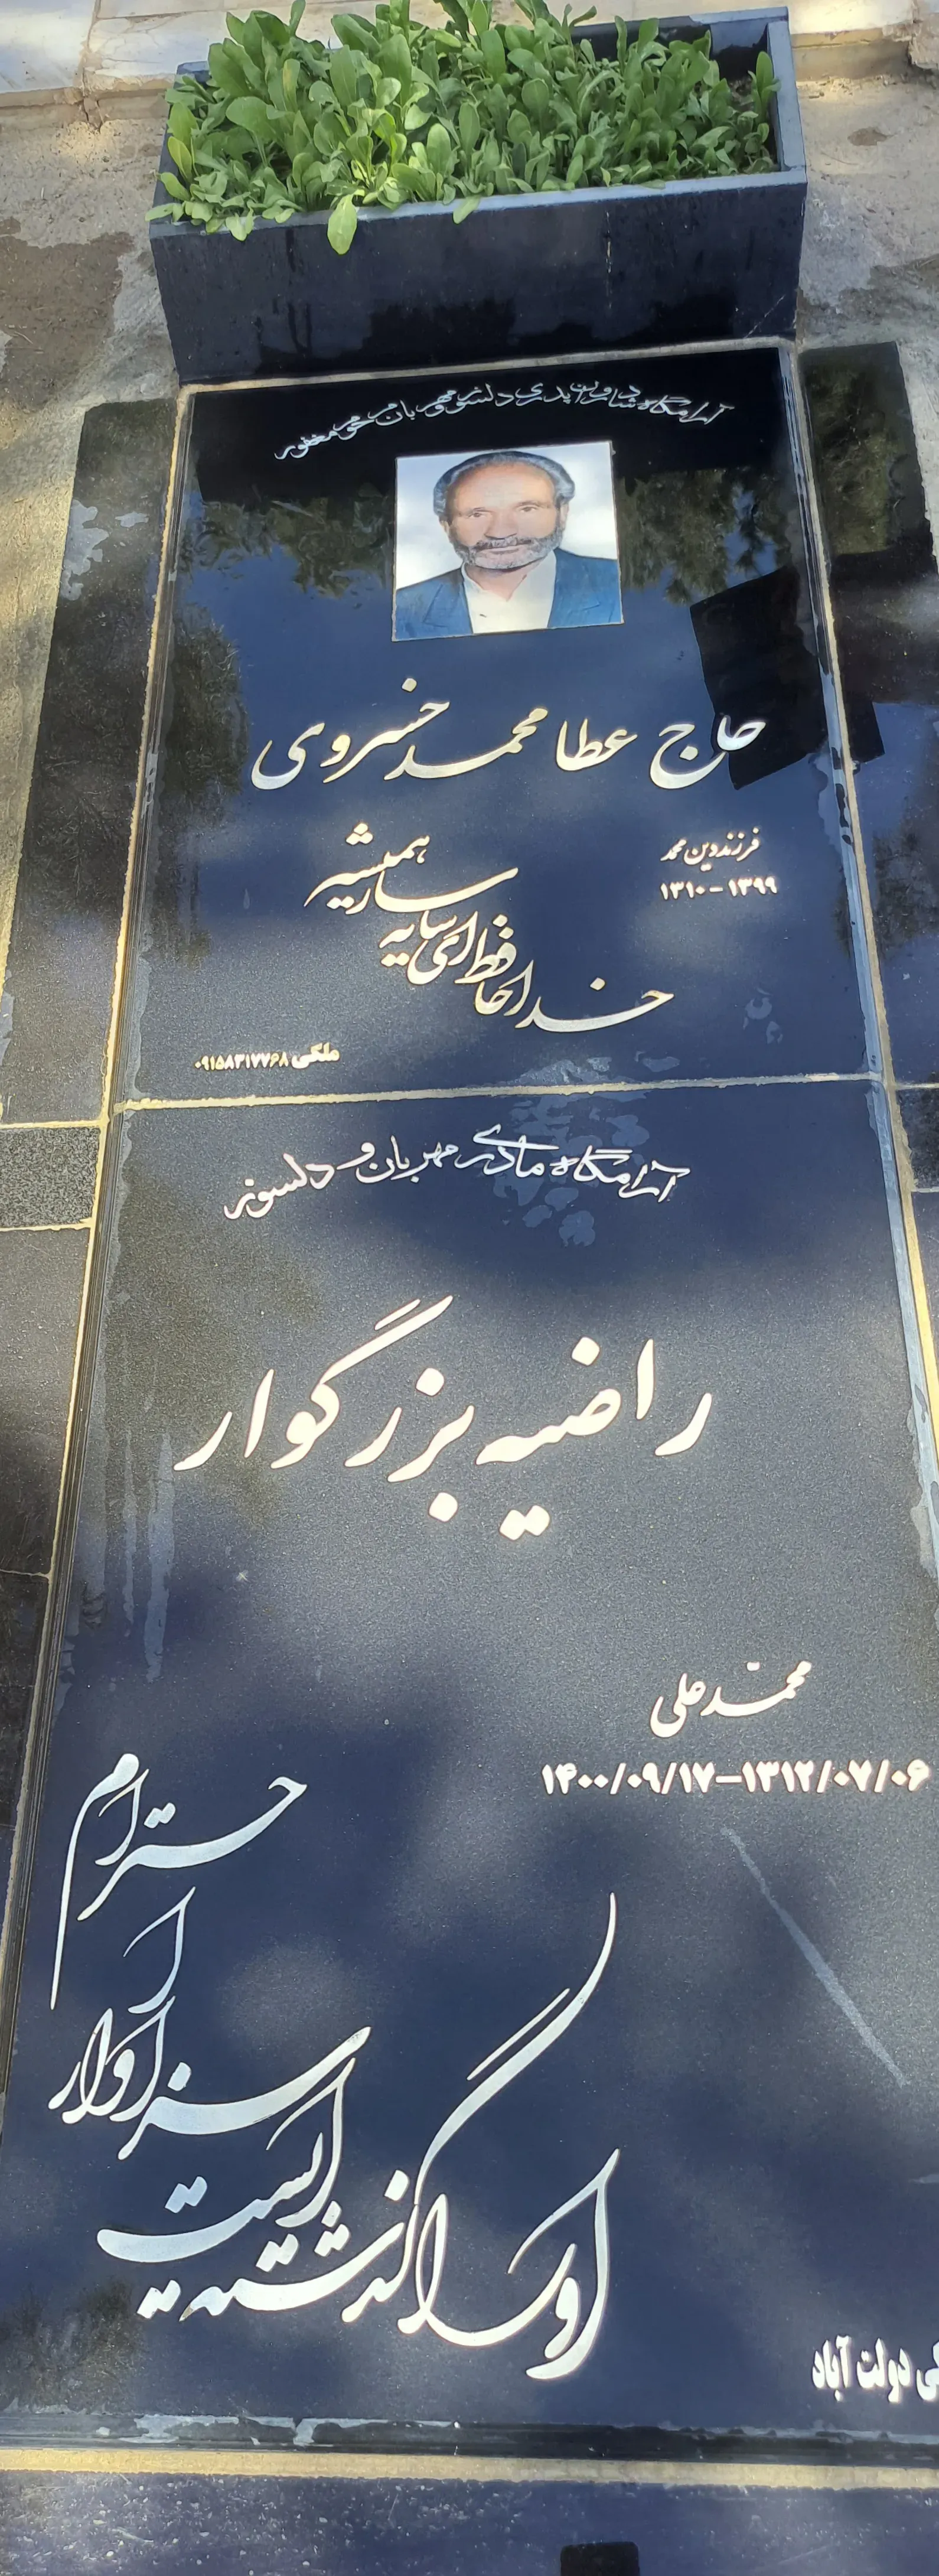 آرامگاه شادروان پدری دلسوز و مهربان مرحوم مغفور
حاج عطا محمد خسروی
فرزند دین محمد
۱۳۱۰-۱۳۹۹
خداحافظ ای سایه سار همیشه
ملکی ۰۹۱۵۸۳۱۷۷۶۸
آرامگاه مادری مهربان و دلسوز
راضیه بزرگوار
محمّد علی
۱۴۰۰/۰۹/۱۷-۱۳۱۲/۰۷/۰۶
او
گذشته است
سزاوار
احترام
دولت آباد